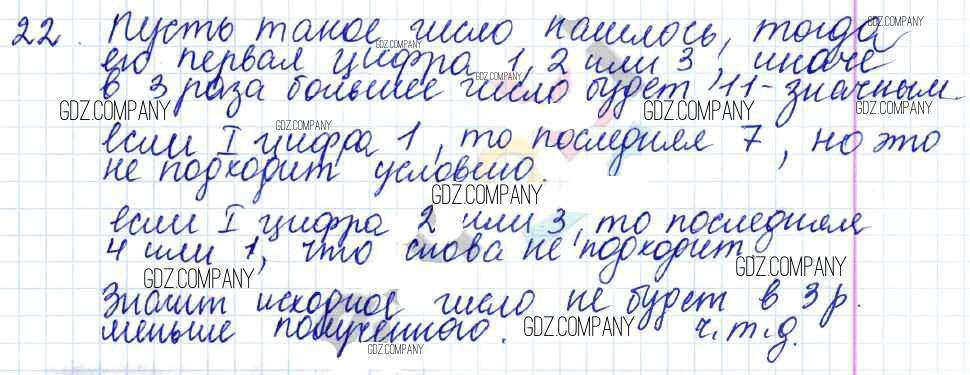 22. Пусть такое число нашлось, тогда
GDZ.COMPANY
GDZ.COMPANY
его первая цифра 1, 2 или 3, иначе
GDZ.COMPANY
в 3 раза большее число будет 11-значным
GDZ.COMPANY
GDZ.COMPANY
GDZ.COMPANY
GDZ.COMPANY
если I цифра 1, то последняя 7, но это
не подходит условию.
GDZ.COMPANY
если I цифра 2 или 3, то последняя
4 или 1, что снова не подходит.
GDZ.COMPANY
GDZ.COMPANY
Значит исходное число не будет в 3 р.
меньше полученного. ч.т.д.
GDZ.COMPANY
GDZ.COMPANY